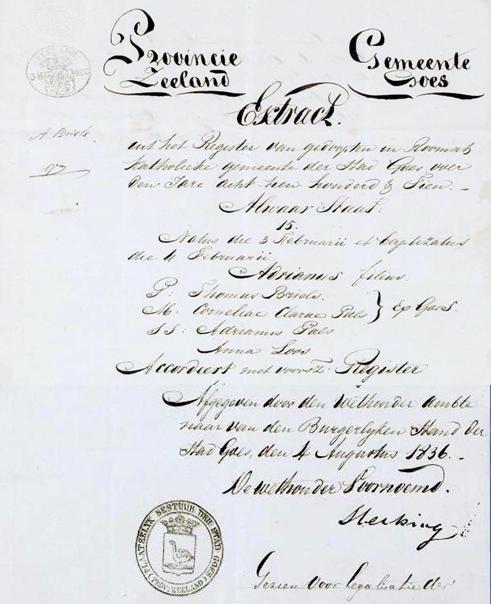 Provincie
Zeeland
Gemeente
Goes
Extract.
A. Briels
uit het Register van gedoopten in Roomsch
katholieke gemeente der Stad Goes over
den Jare acht tien honderd & Tien. –
Alwaar Staat:
15.
Natus die 3 Februarii et baptizatus
die 4 Februarii
Adrianus filius
P: Thomas Briels.
M: Corneliae Clarae Pals } Ex Goes.
SS: Adrianus Pals
Anna Loos
Accordeert met voorsz: Register
Afgegeven door den Wethouder Ambte
naar van den Burgerlyken Stand der
Stad Goes, den 4 Augustus 1836. –
De wethouder Voornoemd.
PLAATSELYK BESTUUR DER STAD GOES
(PROV: ZEELAND)
Gezien voor legalisatie der